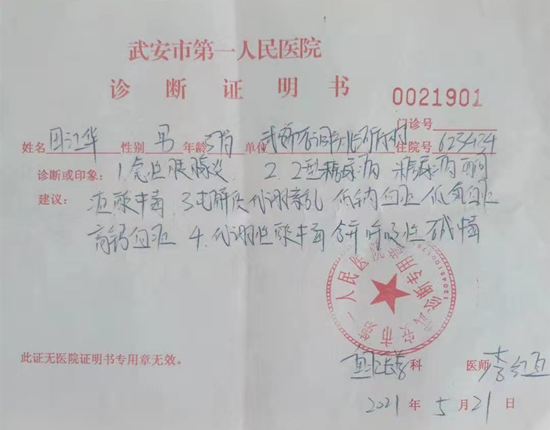 武安市第一人民医院
诊断证明书
0021901
门诊号
姓名 性别 男 年龄 单位 住院号 623424
诊断或印象: 1.急性胰腺炎 2. 2型糖尿病 糖尿病酮
建议: 症酸中毒 3.电解质代谢紊乱 低钠血症 低氯血症
高钙血症 4.代谢性酸中毒合并呼吸性碱中毒
武安市第一人民医院
诊断专用
此证无医院证明书专用章无效。
科 医师
2021年5月21日